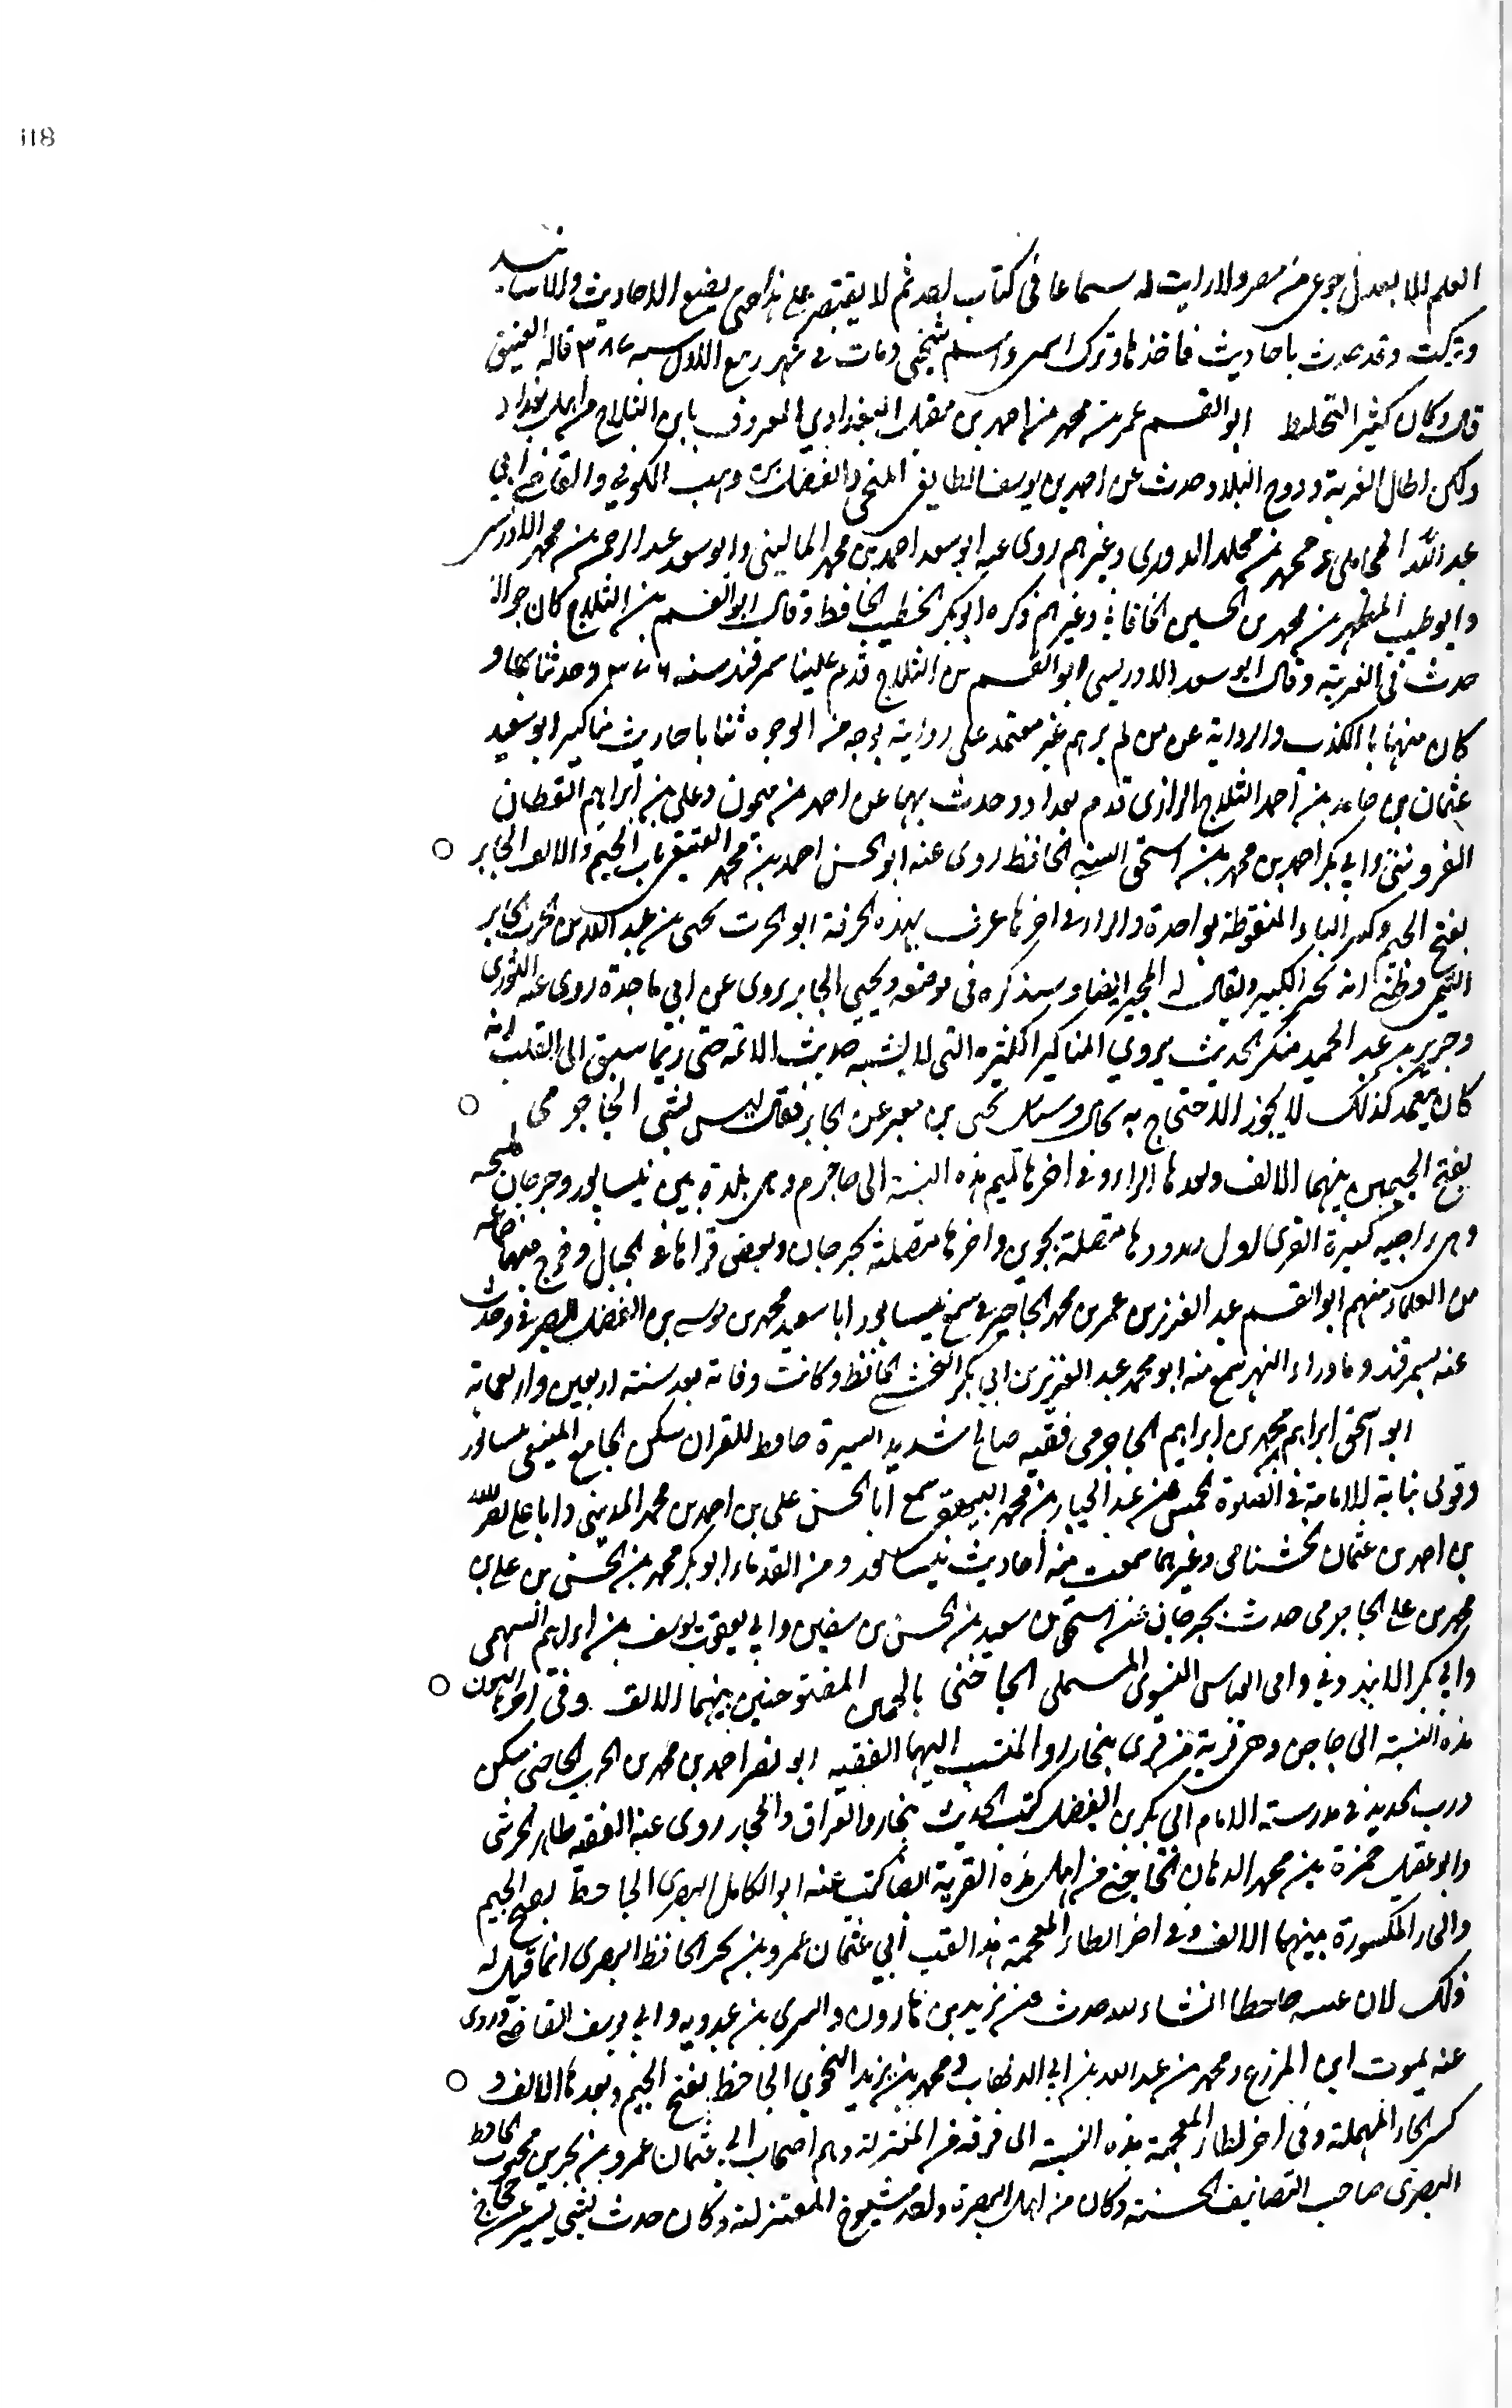 118
العلم الا بعد رجوعي من مصر ولا رايت له سماعا في كتاب احد ثم لا يقتصر على هذا حتى يضع الاحاديث والاسانيد
ويركب وقد حدث باحاديث فاخذها وترك اسم واسم شيخي ومات في شهر ربيع الاول سنة ٣٨٧ قاله العتيقي
قال وكان كثير التخليط ابو القسم عمر بن محمد بن احمد بن مقبل البغدادي المعروف بابن الثلاج من اهل بغداد
ولكن اطال الغربة ودوح البلاد وحدث عن احمد بن يوسف الطايي المنبجي والفضل بن وهب الكوفي والقاضي ابي
عبد الله المحاملي ومحمد بن مخلد الدوري وغيرهم روى عنه ابو سعد احمد بن محمد الماليني وابو سعد عبد الرحمن بن محمد الادريسي
وابو طيب المطهر بن محمد بن الحسين الخاقاني وغيرهم ذكره ابو بكر الخطيب الحافظ وقال ابو القسم بن الثلاج كان جوالا
حدث في الغربة وقال ابو سعد الادريسي ابو القسم بن الثلاج قدم علينا سمرقند سنة ٣٧٦ وحدثنا بها و
كان متهما بالكذب والرواية عن من لم يرهم غير معتمد على روايته بوجه من الوجوه ثنا باحاديث مناكير ابو سعيد
عثمان بن حامد بن احمد الثلاج الرازي قدم بغداد وحدث بها عن احمد بن ميمون وعلي بن ابراهيم القطان
القزوينيين وابي بكر احمد بن محمد بن اسحق السني الحافظ روى عنه ابو الحسن احمد بن محمد العتيقي باب الجيم والالف الجابر
بفتح الجيم وكسر الباء المنقوطة بواحدة والراء في اخرها عرف بهذه الحرفة ابو الحرث يحيى بن عبد الله بن الحرث الجابر
التيمي وظني انه يجبر الكبير ويقال له المجبر ايضا وسنذكره في موضعه ويحيى الجابر يروي عن ابي ماجدة روى عنه الثوري
وجرير بن عبد الحميد منكر الحديث يروي المناكير الكثيره التي لا يشبه حديث الائمة حتى ربما سبق الى القلب انه
كان يتعمد كذلك لا يجوز الاحتجاج به بحال وسئل يحيى بن معين عن الجابر فقال ليس بشي الجاجرمي
بفتح الجيمين بينهما الالف وبعدها الراء وفي اخرها الميم هذه النسبة الى جاجرم وهي بلدة بين نيسابور وجرجان
وهي ناحيه كثيرة القرى اول حدودها متصلة بجوين واخرها متصلة بجرجان وبعض قراها في الجبال وخرج منها جماعة
من العلماء منهم ابو القسم عبد العزيز بن عمر بن محمد الجاجرمي سمع بنيسابور ابا سعيد محمد بن موسى بن الفضل الصيرفي وحدث
عنه بسمرقند وماوراء النهر سمع منه ابو محمد عبد العزيز بن ابي بكر النخشبي الحافظ وكانت وفاته بعد سنة اربعين واربعماية
ابو اسحق ابراهيم بن محمد بن ابراهيم الجاجرمي فقيه صالح شديد السيرة حافظ للقران سكن الجامع المنيعي بنيسابور
وتولى نيابة للامامة في الصلوة الخمس عن عبد الجبار بن محمد البيهقي سمع ابا الحسن علي بن احمد بن محمد المديني وابا علي نصر الله
بن احمد بن عثمان الخشنامي وغيرهما سمعت منه احاديث بنيسابور ومن القدماء ابو بكر محمد بن الحسن بن علي بن
محمد بن علي الجاجرمي حدث بجرجان عن اسحق بن سعيد بن الحسن بن سفين وابي يعقوب يوسف بن ابراهيم السهمي
وابي بكر الابندوني وابي العباس النسوي المستملي الجاجني بالجيمين المفتوحتين بينهما الالف وفي اخرها النون
هذه النسبة الى جاجن وهي قرية من قرى بخارا والمنتسب اليها الفقيه ابو نصر احمد بن محمد بن الحرث الجاجني سكن
درب الحديد في مدرسة الامام ابي بكر بن الفضل كتب الحديث ببخارا والعراق والحجاز روى عنه الفقيه طاهر الحرشي
وابو عقيل حمزة بن محمد الدهان الجاجني من اهل هذه القرية ايضا كتب عنه ابو الكامل البصري الجاحظ بفتح الجيم
والحاء المكسورة بينهما الالف وفي اخر الظاء المعجمة هذا لقب ابي عثمان عمرو بن بحر الحافظ البصري انما قيل له
ذلك لان عينيه جاحظتان انشاء الله حدث عن يزيد بن هارون والسري بن عبدويه وابي يوسف القاضي وروى
عنه يموت ابن المزرع ومحمد بن عبد الله بن ابي الدلهاب ومحمد بن يزيد النحوي الجاحظي بفتح الجيم وبعدها الالف و
كسر الحاء المهملة وفي اخر الظاء المعجمة هذه النسبة الى فرقة من المعتزلة وهم اصحاب ابي عثمان عمرو بن بحر بن محبوب الجاحظ
البصري صاحب التصانيف الحسنة وكان من اهل البصرة واحد شيوخ المعتزلة وكان حدث بشي يسير عن حجاج